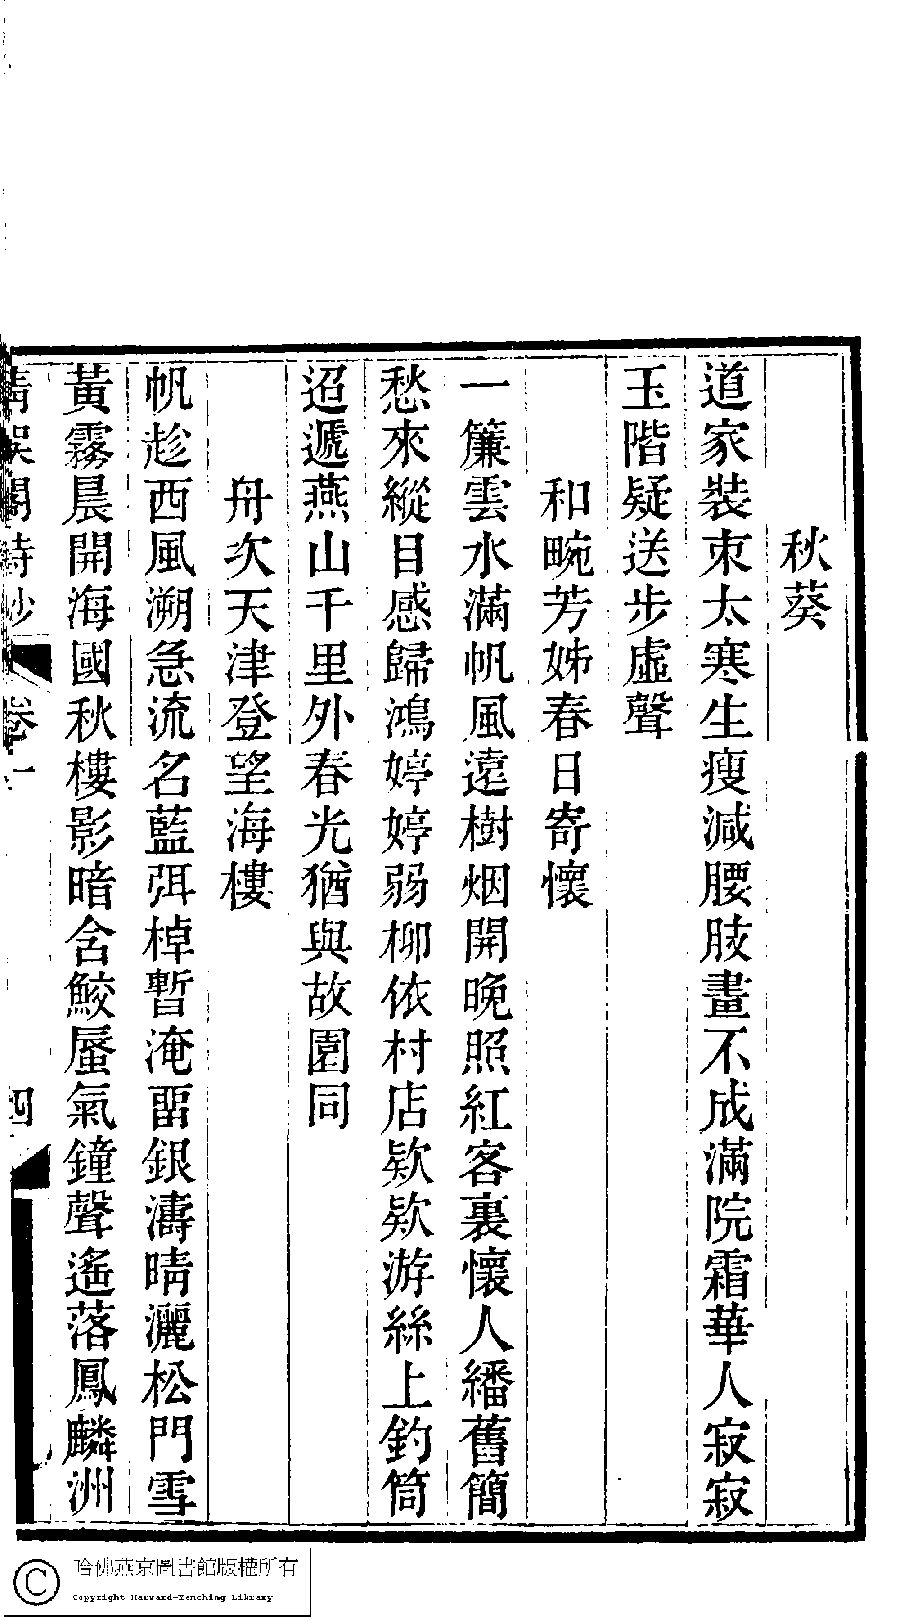 秋葵
道家裝束太寒生瘦減腰肢畫不成滿院霜華人寂寂
玉階疑送步虛聲
和畹芳姊春日寄懷
一簾雲水滿帆風遠樹烟開晚照紅客裏懷人繙舊簡
愁來縱目感歸鴻婷婷弱柳依村店欵欵游絲上釣筒
迢遞燕山千里外春光猶與故園同
舟次天津登望海樓
帆趁西風溯急流名藍弭棹暫淹畱銀濤晴灑松門雪
黃霧晨開海國秋樓影暗含鮫蜃氣鐘聲遙落鳳麟洲
閣詩鈔 卷一 四
哈佛燕京圖書館版權所有
Copyright Harvard-Yenching Library